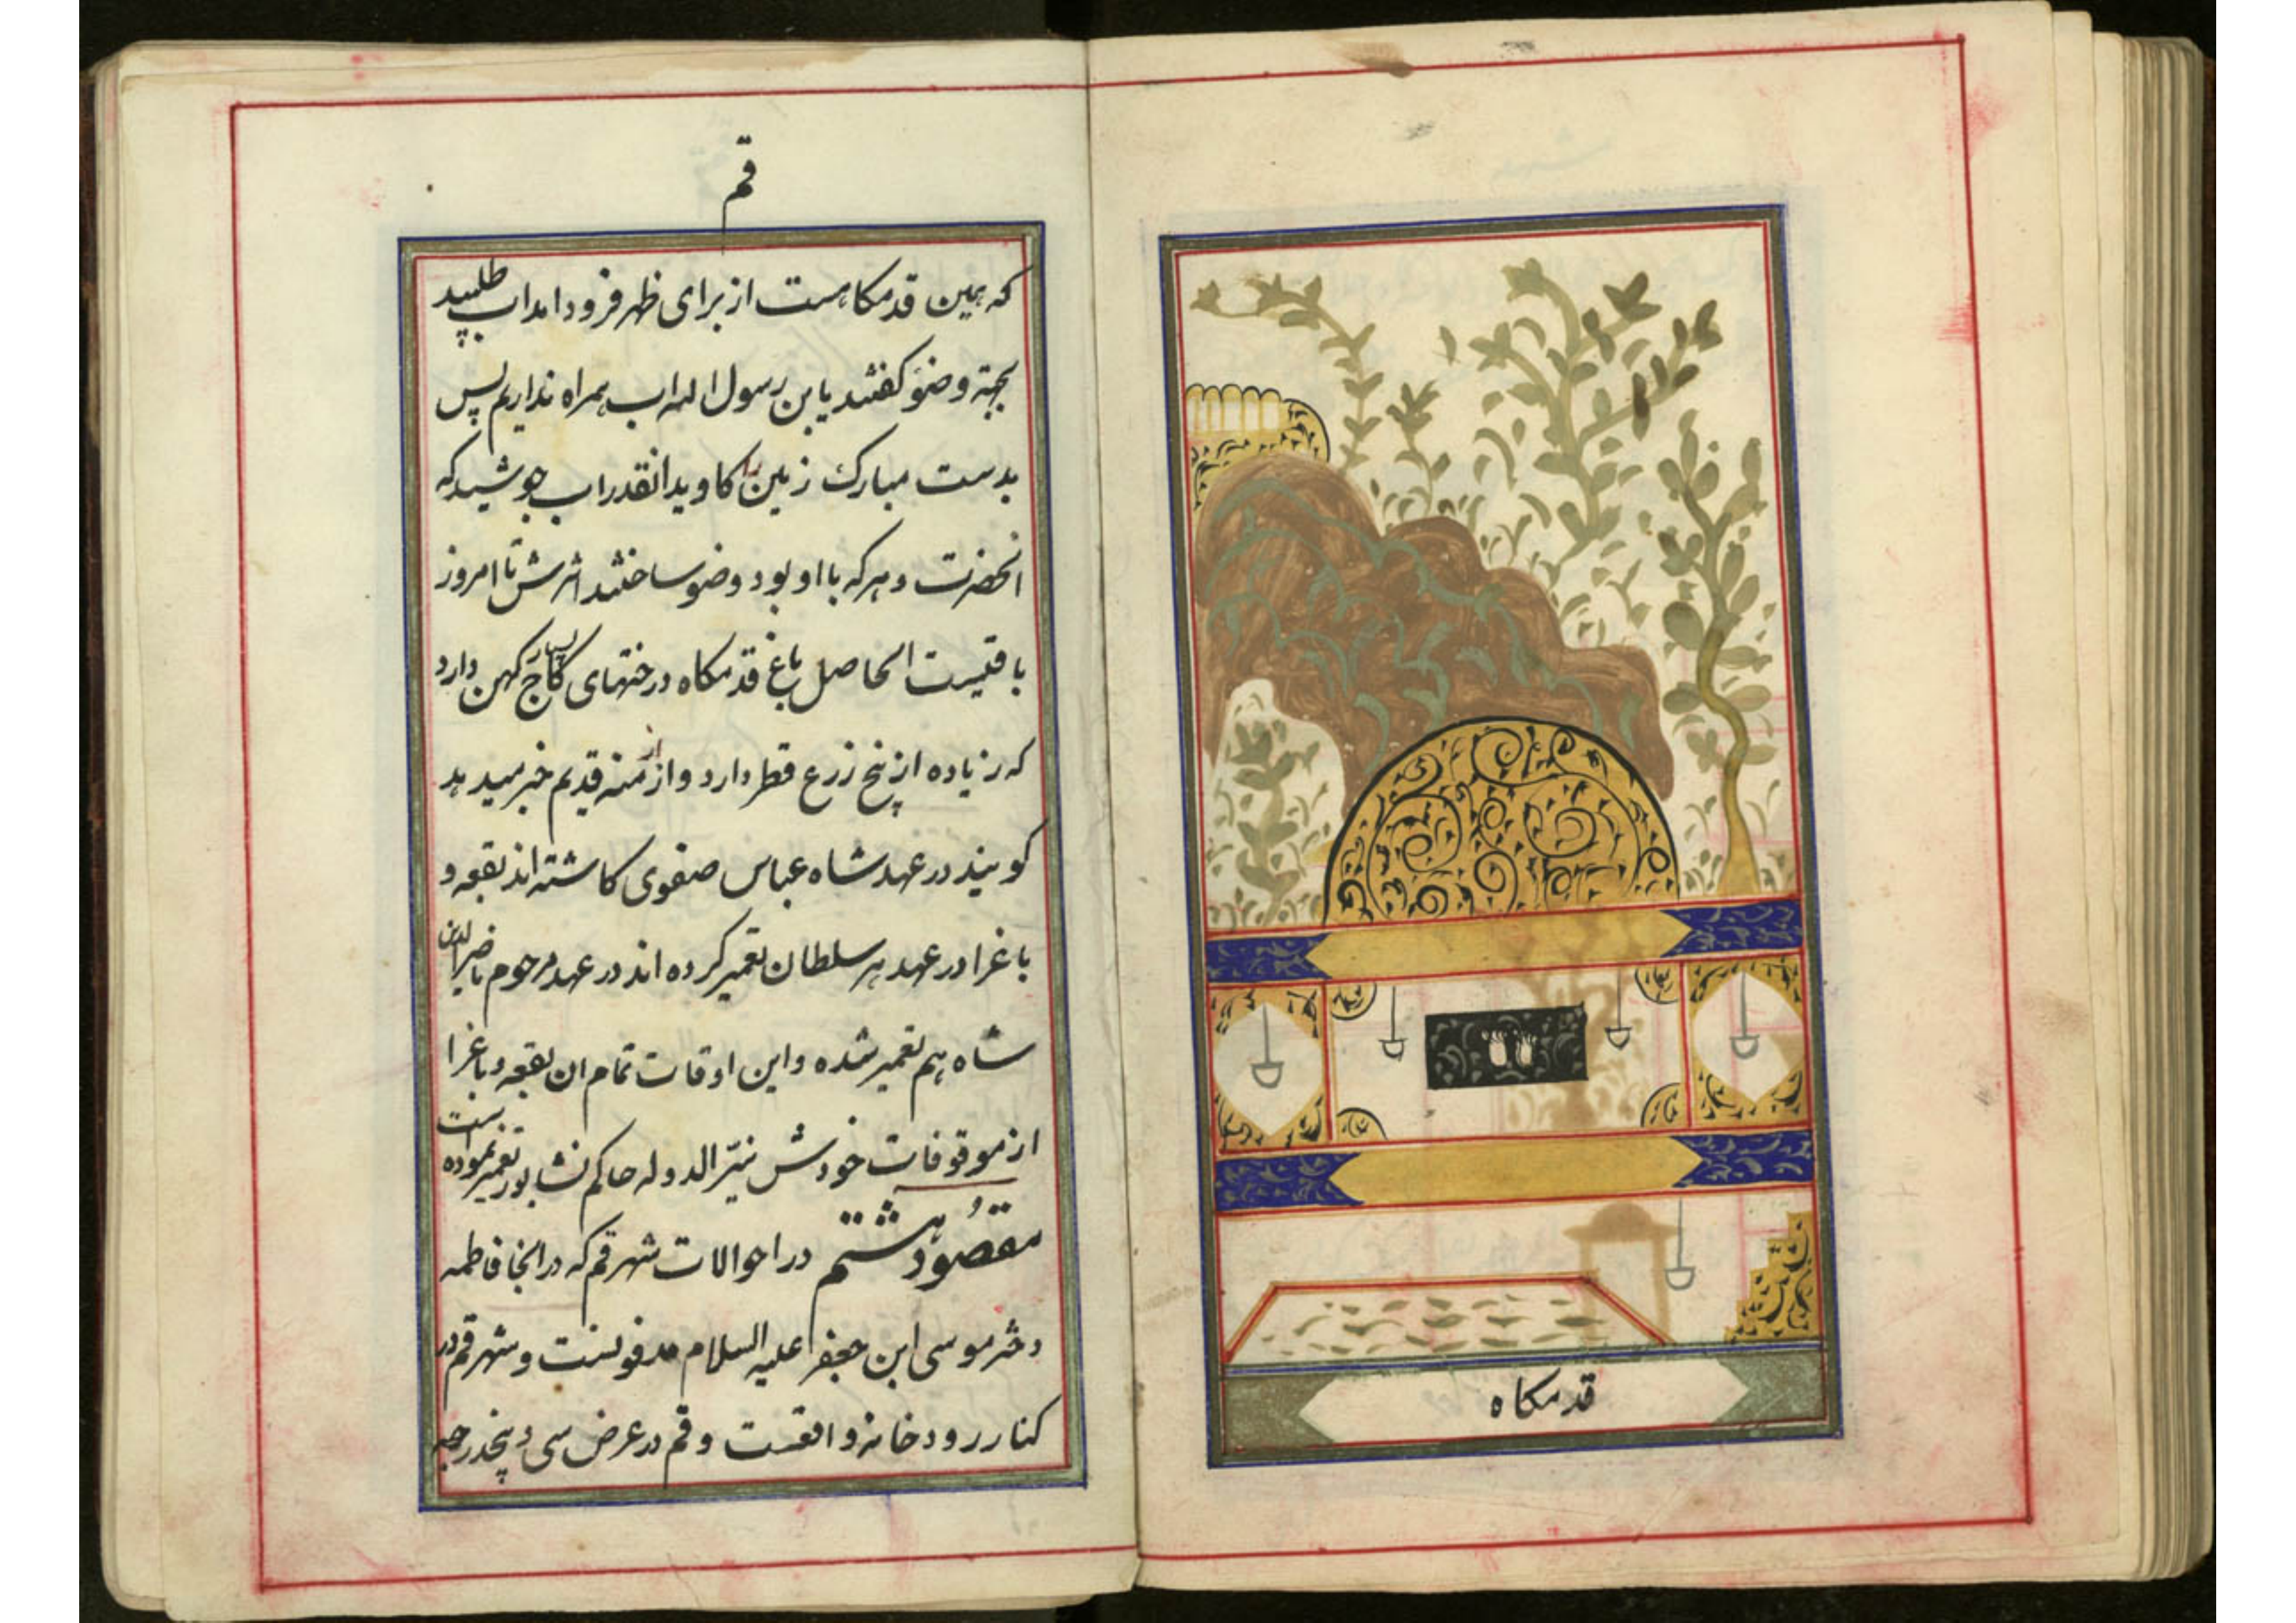 قدمکاه
قم
که همین قدمکاهست از برای ظهر فرود امد اب طلبید
بجهة وضو کفتند یابن رسول اله اب همراه نداریم پس
بدست مبارک زمین را کاوید انقدر اب جوشید که
انحضرت و هرکه با او بود وضو ساختند اثرش تا امروز
باقیست الحاصل باغ قدمکاه درختهای کاج بسیار کهن دارد
که زیاده از پنج زرع قطر دارد و از ازمنه قدیم خبر میدهد
کویند در عهد شاه عباس صفوی کاشته اند بقعه و
باغرا در عهد هر سلطان تعمیر کرده اند در عهد مرحوم ناصرالدین
شاه هم تعمیر شده و این اوقات تمام ان بقعه و باغرا
از موقوفات خودش نیّر الدوله حاکم نشابور تعمیر نموده است
مقصُود هشتم در احوالات شهر قم که در انجا فاطمه
دختر موسی ابن جعفر علیه السلام مدفونست و شهر قم در
کنار رودخانه واقعست و قم در عرض سی و پنجدرجه